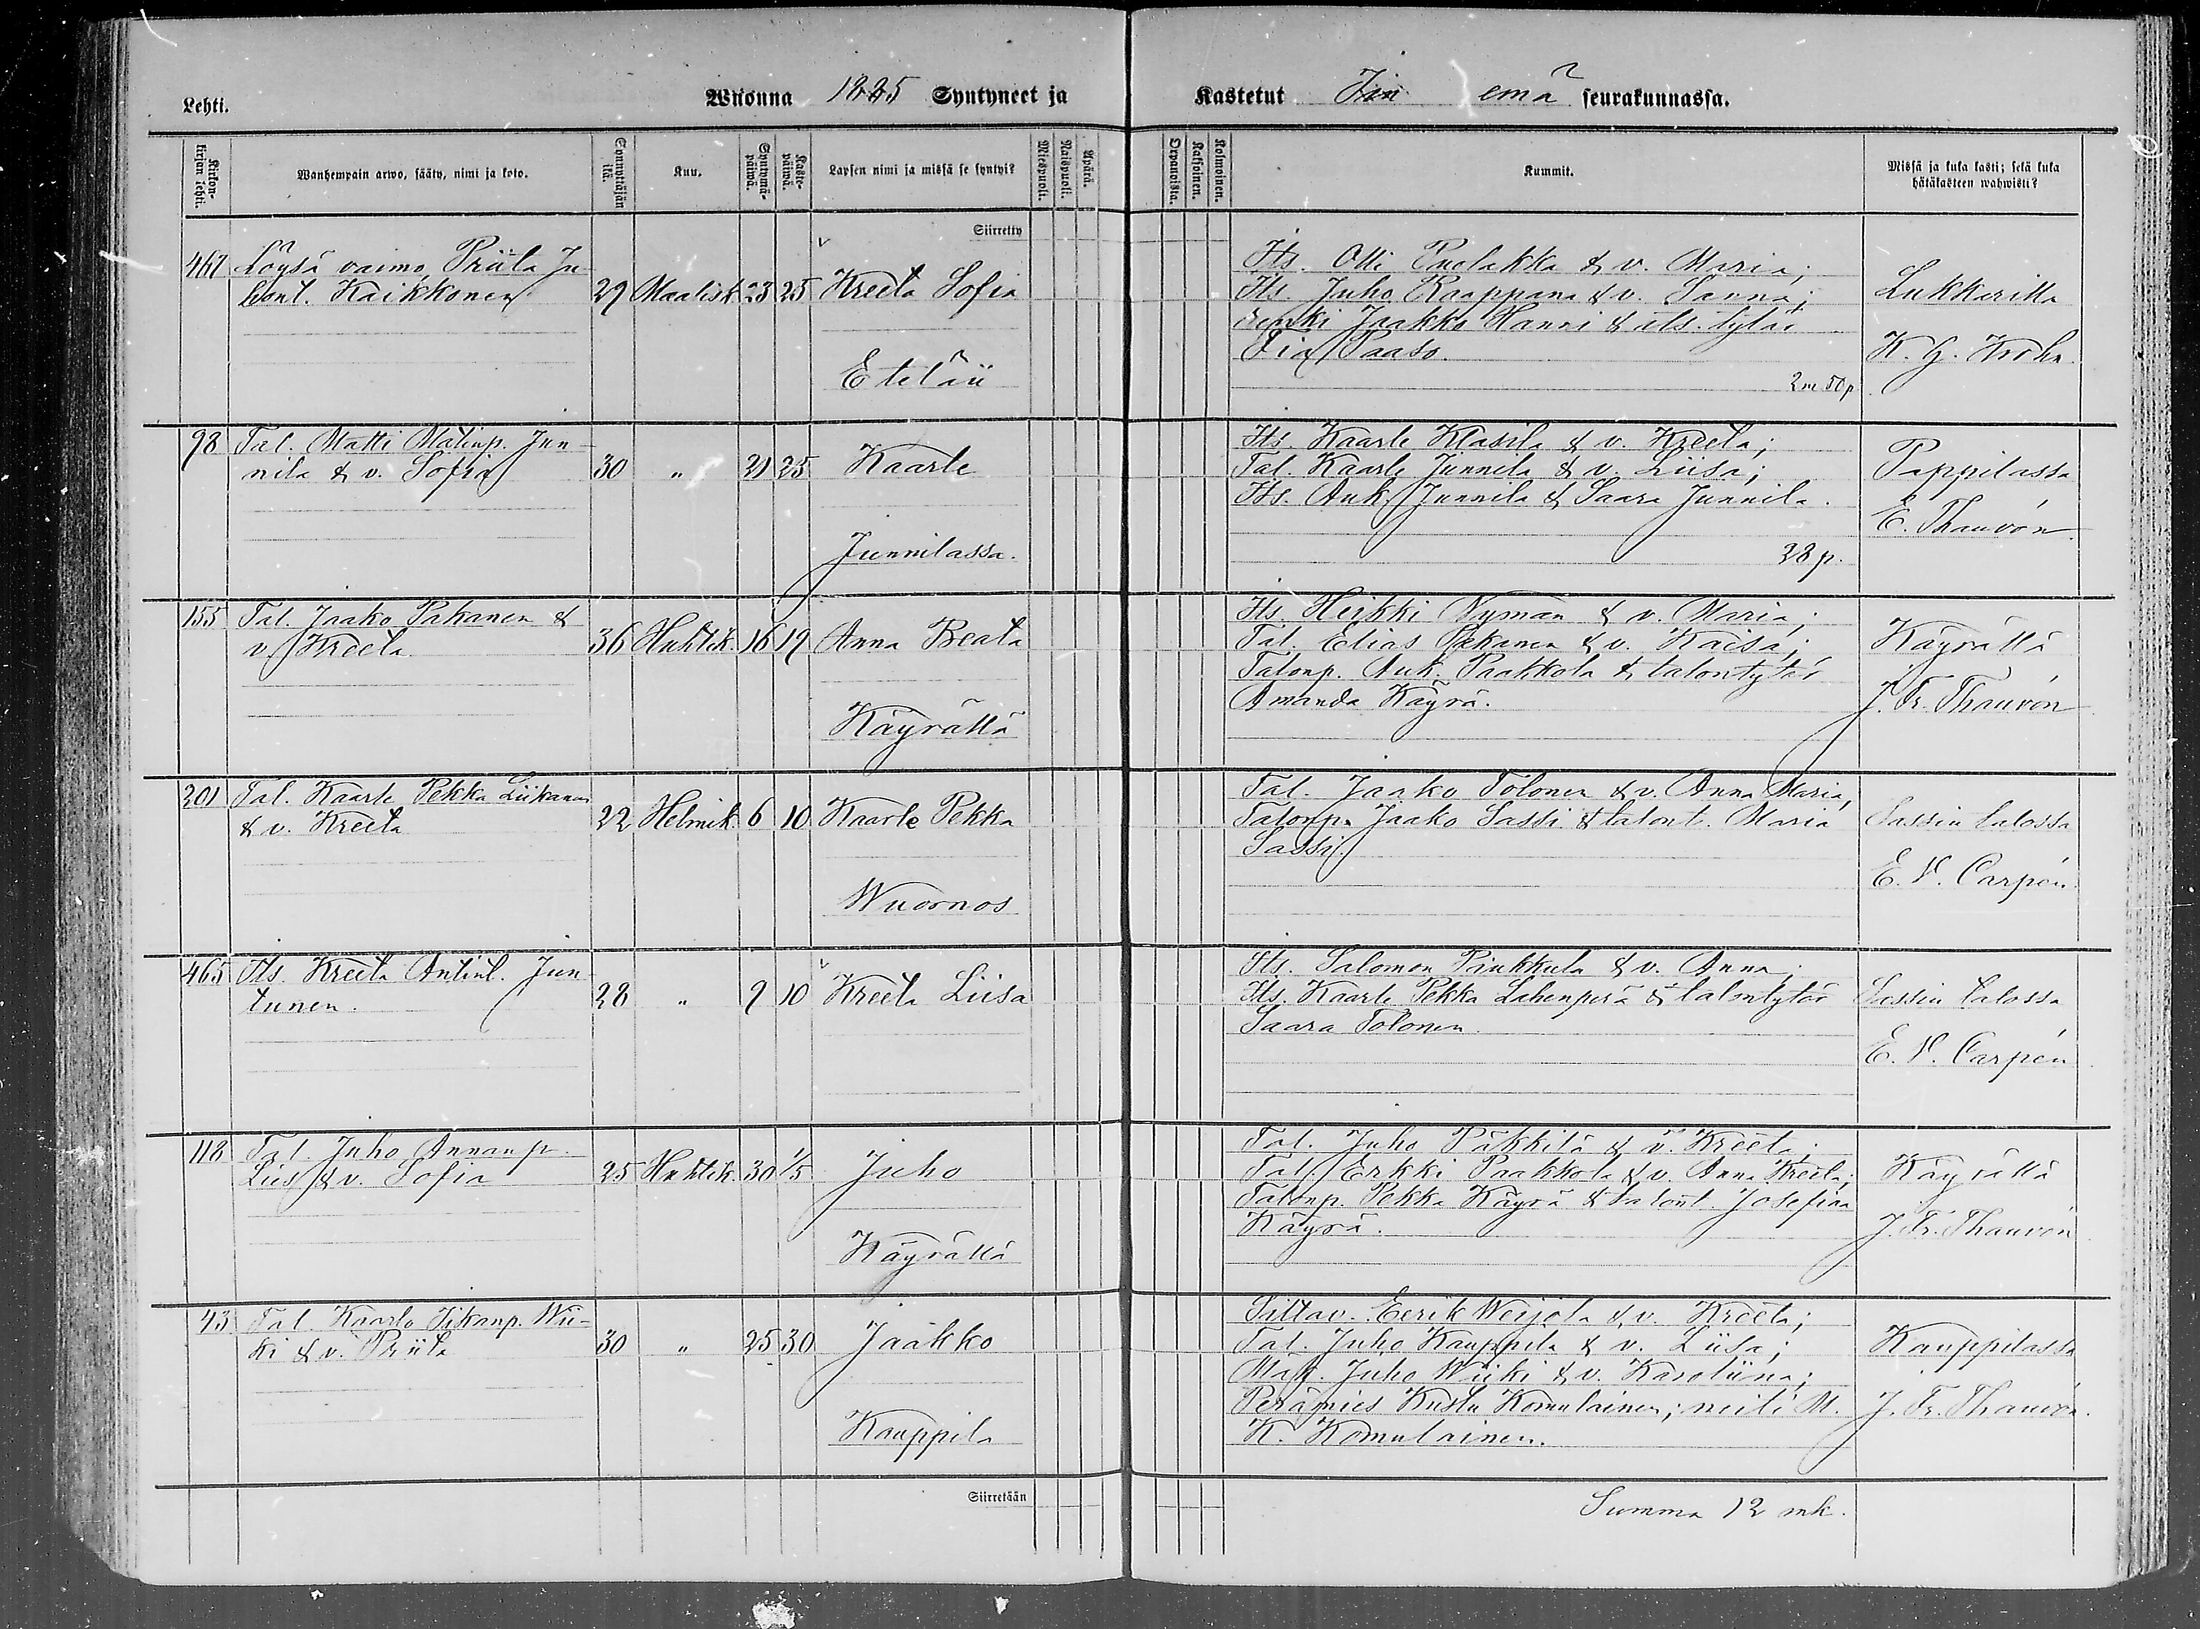 Lehti.
Wuonna 1885 Syntyneet ja
Kastetut Iin emä seurakunnassa.
Kirkonkirjan lehti.
Wanhempain arwo, sääty, nimi ja koto.
Synnyttäjän ikä.
Kuu.
Syntymäpäiwä.
Kastepäiwä.
Lapsen nimi ja missä se syntyi?
Miespuoli.
Naispuoli.
Äpärä.
Orpanoista.
Kaksoinen.
Kolmoinen.
Kummit.
Missä ja kuka kasti; sekä kuka hätäkasteen wahwisti?
Siirretty
467 Löysä vaimo, Priita Ju
hont. Kaikkonen 29 Maalisk. 23 25 Kreeta Sofia
Eteläii
Its. Olli Puolakka & v. Maria;
Its. Juho Kaappana & v. Sanna;
renki Jaakko Hanni & its. tytär
Fia Paaso.
2 m 50 p
Lukkarilla
K. G. Krohn.
98 Tal. Matti Matinp. Jun-
nila & v. Sofia 30 " 21 25 Kaarle
Junnilassa.
Its. Kaarle Klasila & v. Kreeta;
Tal. Kaarle Junnila & v. Liisa;
Its. Auk. Junnila & Saara Junnila.
38 p.
Pappilassa
E. Thauvón
155 Tal. Jaako Pakanen &
v. Kreeta 36 Huhtik. 16 19 Anna Beata
Käyrällä
Its. Heikki Nyman & v. Maria;
Tal. Elias Pakanen & v. Kaisa;
Talonp. Auk. Paakkola & talontytär
Amanda Käyrä.
Käyrällä
J. Fr. Thauvón
201 Tal. Kaarle Pekka Liikanen
& v. Kreeta 22 Helmik. 6 10 Kaarle Pekka
Wuornos
Tal. Jaako Tolonen & v. Anna Maria,
Talonp. Jaako Sassi & talont. Maria
Sassi.
Sassin talossa
E. V. Carpén
465 Its. Kreeta Antint. Jun-
tunen. 28 " 9 10 Kreeta Liisa
Its. Salomon Pinkkula & v. Anna;
Its. Kaarle Pekka Lahenperä & talontytär
Saara Tolonen.
Sassin talossa
E. V. Carpén
118 Tal. Juho Annanp.
Lies & v. Sofia 25 Huhtik. 30 1/5 Juho
Käyrällä
Tal. Juho Päkkilä & v. Kreeta;
Tal. Erkki Paakkola & v. Anna Kreeta;
Talonp. Pekka Käyrä & talont. Josefina
Käyrä.
Käyrällä
J. Fr. Thauvón
43 Tal. Kaarlo Iikanp. Wii-
ki & v. Priita 30 " 25 30 Jaakko
Kauppila
Siltav. Eerik Weijola & v. Kreeta;
Tal. Juho Kauppila & v. Liisa;
Mäk. Juho Wiiki & v. Karoliina;
Perämies Kustu Komulainen; neiti M.
K. Komulainen.
Kauppilassa
J. Fr. Thauvón.
Siirretään
Summa 12 mk.